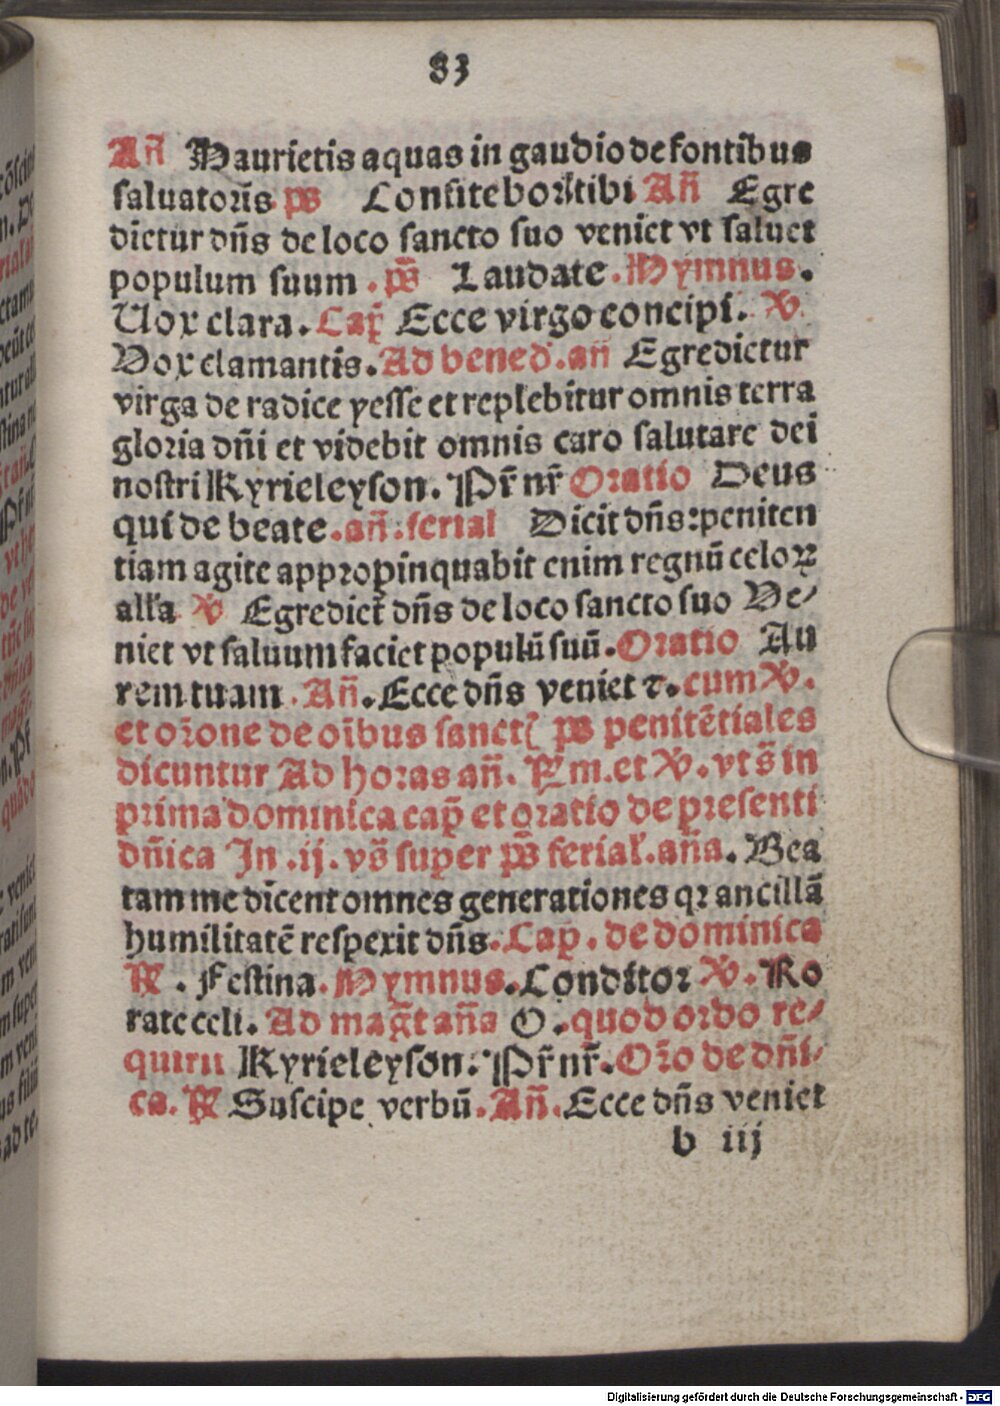 83
Añ Haurietis aquas in gaudio de fontibus
saluatoris ps Confitebor tibi Añ Egre
dietur dñs de loco sancto suo veniet vt saluet
populum suum . ps Laudate . Hymnus .
Uox clara . Cap̃ Ecce virgo concipi . V̾
Vox clamantis . Ad bened̃ . añ Egredietur
virga de radice yesse et replebitur omnis terra
gloria dñi et videbit omnis caro salutare dei
nostri Kyrieleyson . Pr̃ nr̃ Oratio Deus
qui de beate . añ . ferial Dicit dñs : peniten
tiam agite appropinquabit enim regnũ celoꝝ
alła V̾ Egrediet̃ dñs de loco sancto suo Ve⸗
niet vt saluum faciet populũ suũ . Oratio Au
rem tuam . Añ . Ecce dñs veniet ⁊ . cum V̾ .
et or̃one de oı̃bus sanct̃ ps penitẽtiales
dicuntur Ad horas añ . P̃m . et V̾ . vt s̃ in
prima dominica cap̃ et oratio de presenti
dñica In . ij . vs̃ super ps̃ ferial̃ . aña . Bea
tam me dicent omnes generationes qꝛ ancillã
humilitatẽ respexit dñs . Cap̃ . de dominica
R̾ . Festina . Hymnus . Conditor V̾ . Ro
rate celi . Ad mag̃t aña O . quod ordo re⸗
quirit Kyrieleyson . Pr̃ nr̃ . Or̃o de dñi⸗
ca . R̾ Suscipe verbũ . Añ . Ecce dñs veniet
b iij
Digitalisierung gefördert durch die Deutsche Forschungsgemeinschaft - DFG